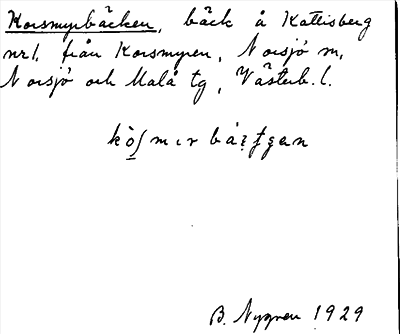 Korsmyrbäcken, bäck å Kattisberg
nr1, från Korsmyren, Norsjö sn,
Norsjö och Malå tg, Västerb. l.
B. Nygren 1929